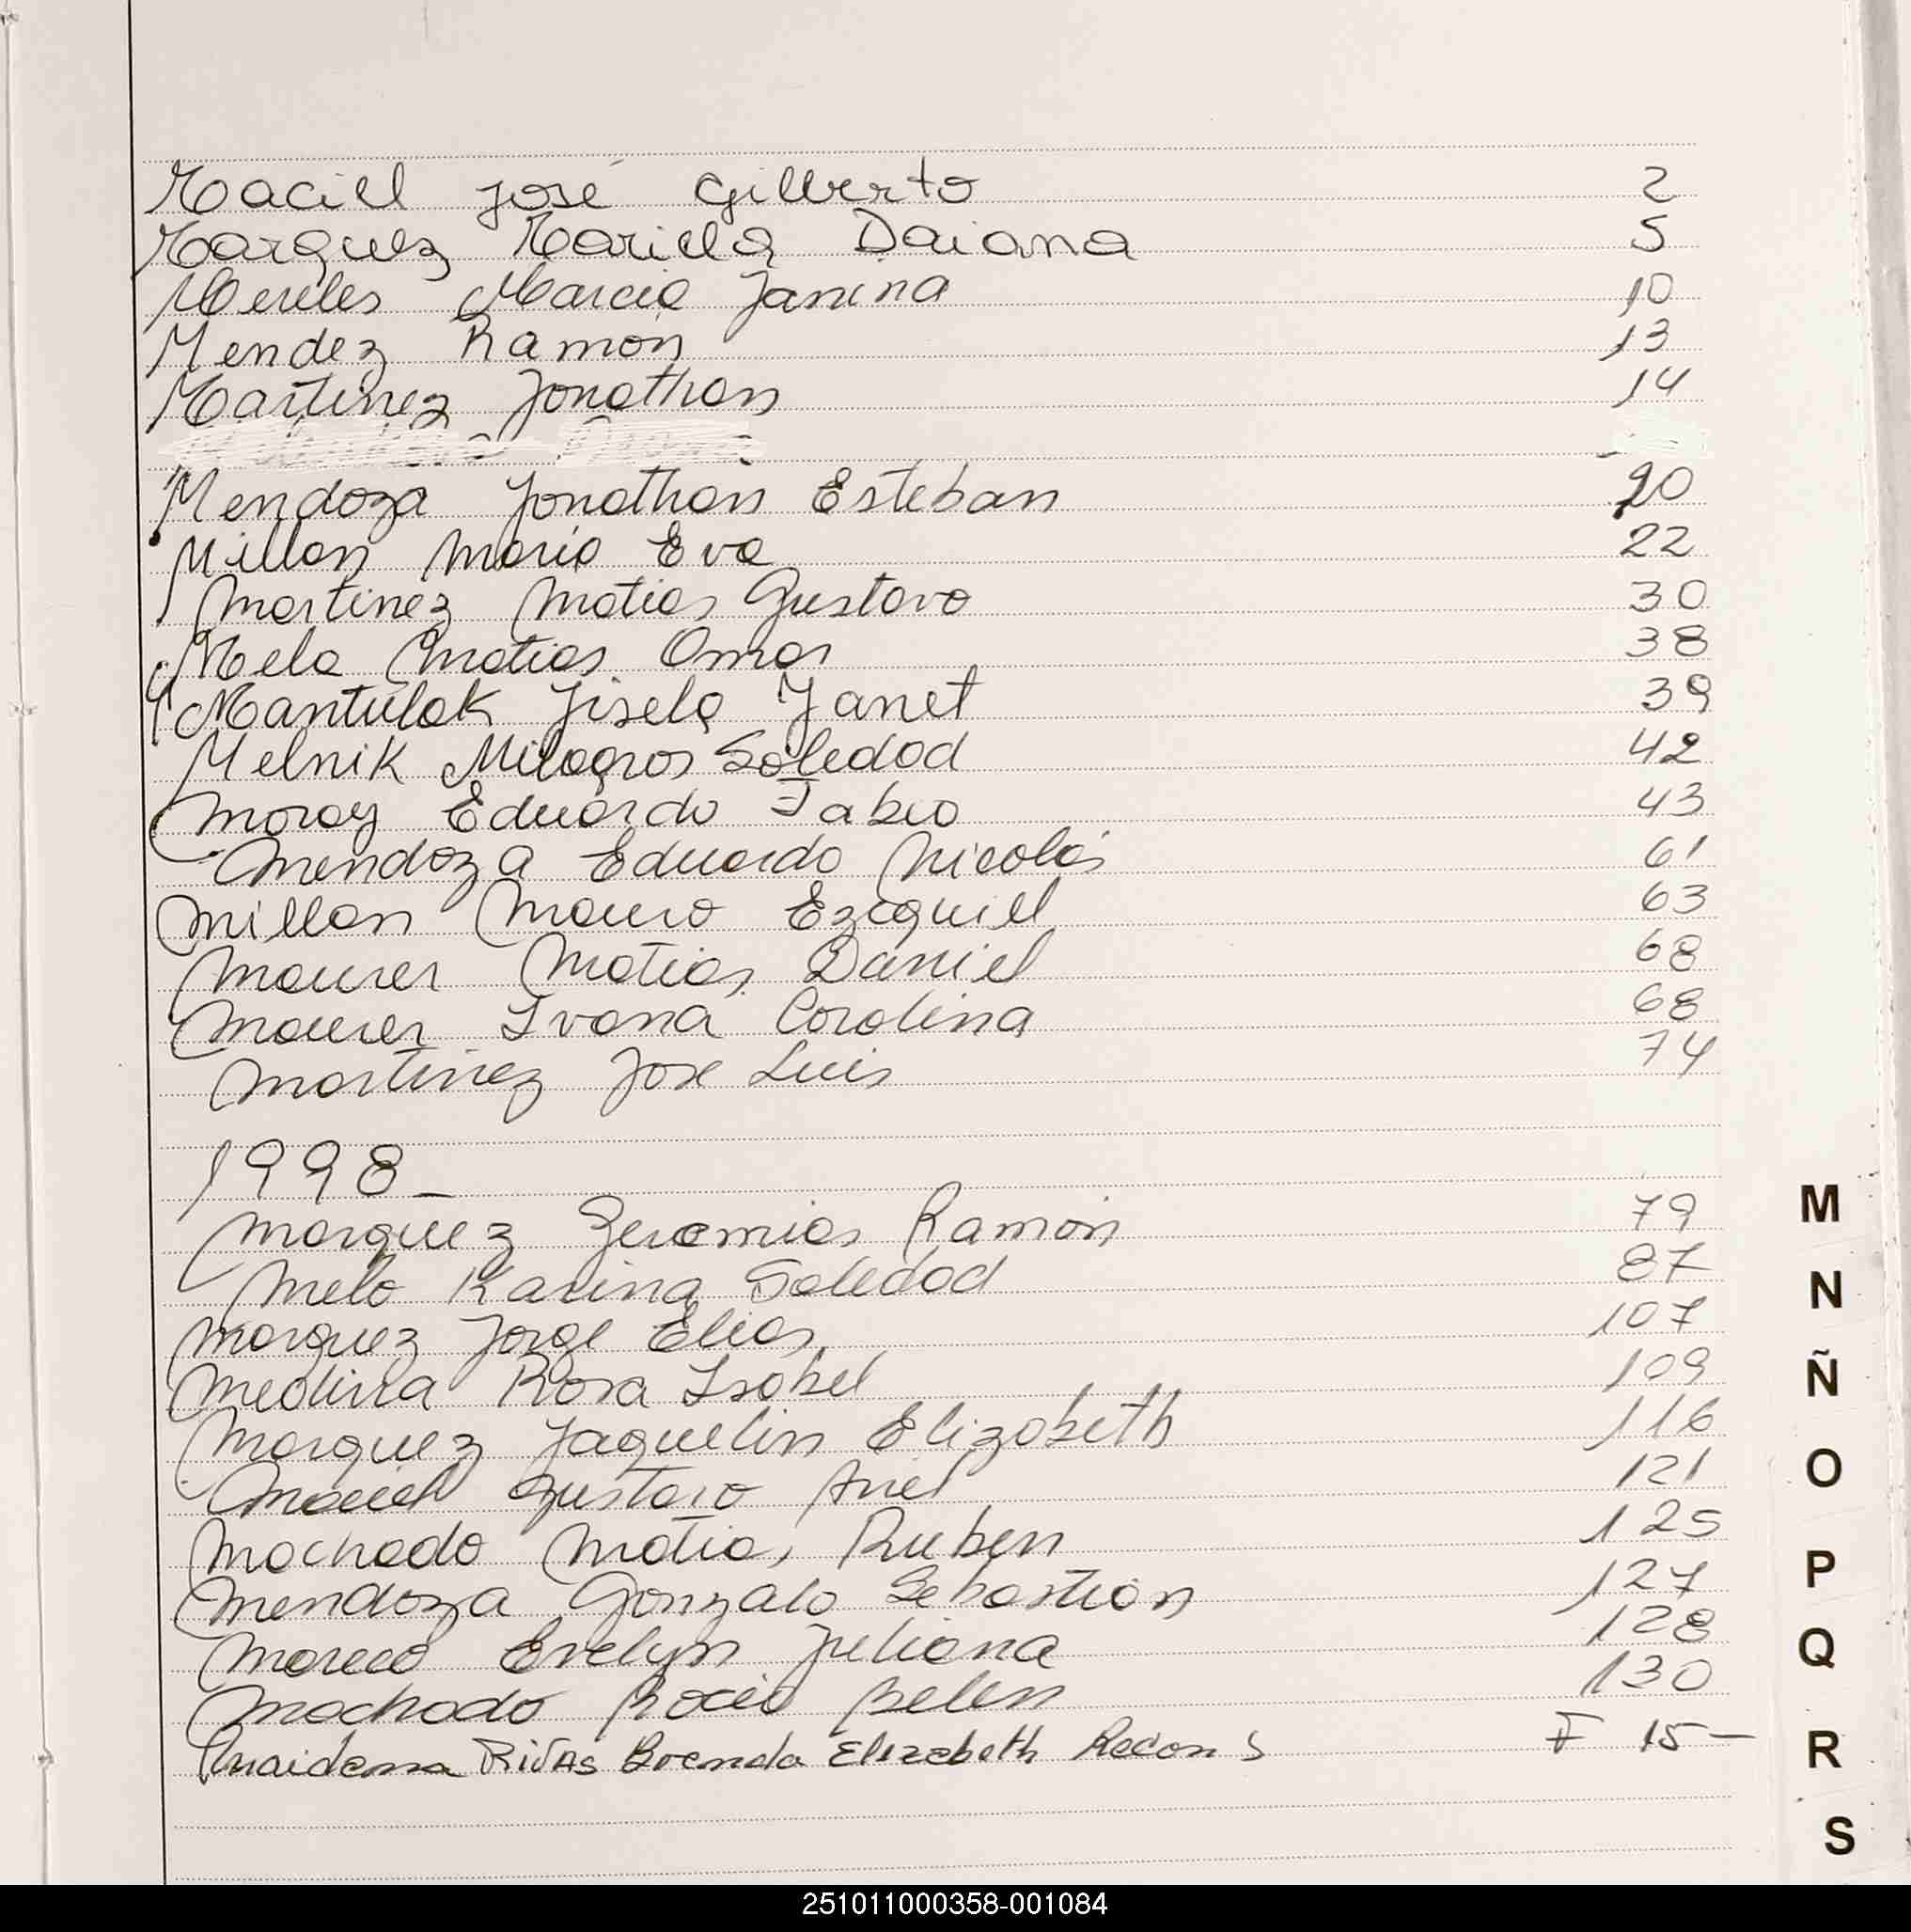 Maciel José Gilberto 2
Marquez Mariela Daiana 5
Mereles Marcia Janina 10
Mendez Ramón 13
Martinez Jonathan 14
Mendoza Jonathan Esteban 20
Millan Maria Eva 22
Martinez Matias Gustavo 30
Melo Matias Omar 38
Mantulak Jisela Janet 39
Melnik Milagros Soledad 42
Moray Eduardo Fabio 43
Mendoza Eduardo Nicolás 61
Millan Mauro Ezequiel 63
Maurer Matias Daniel 68
Maurer Ivana Carolina 68
Martinez Jose Luis 74
1998_
Marquez Geremias Ramón 79
Melo Karina Soledad 87
Marquez Jorge Elias 107
Medina Rosa Isabel 109
Marquez Jaquelin Elizabeth 116
Maciel Gustavo Ariel 121
Machado Matias Ruben 125
Mendoza Gonzalo Sebastián 127
Mareco Evelyn Juliana 128
Machado Rocio Belen 130
Maidana RiVAs Brenda Elizabeth Recon S F 15 —
M
N
Ñ
O
P
Q
R
S
251011000358-001084